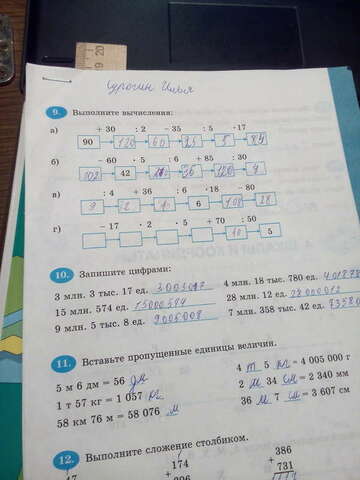 Сурогин Илья
9. Выполните вычисления:
а) + 30 : 2 − 35 : 5 · 17
90 120 60 25 5 85
б) − 60 · 5 : 6 + 85 : 30
102 42 35 120 4
в) : 4 + 36 : 6 · 18 − 80
6 108 28
г) − 17 · 2 · 5 + 70 : 50
5
10. Запишите цифрами:
3 млн. 3 тыс. 17 ед. 3003017 4 млн. 18 тыс. 780 ед. 401878
15 млн. 574 ед. 15000574 28 млн. 12 ед. 28 000012
9 млн. 5 тыс. 8 ед. 9005008 7 млн. 358 тыс. 42 ед. 73580
11. Вставьте пропущенные единицы величин.
5 м 6 дм = 56 дм 4 т 5 кг = 4 005 000 г
1 т 57 кг = 1 057 кг 2 м 34 см = 2 340 мм
58 км 76 м = 58 076 м 36 м 7 см = 3 607 см
12. Выполните сложение столбиком.
174 386
+ + 731